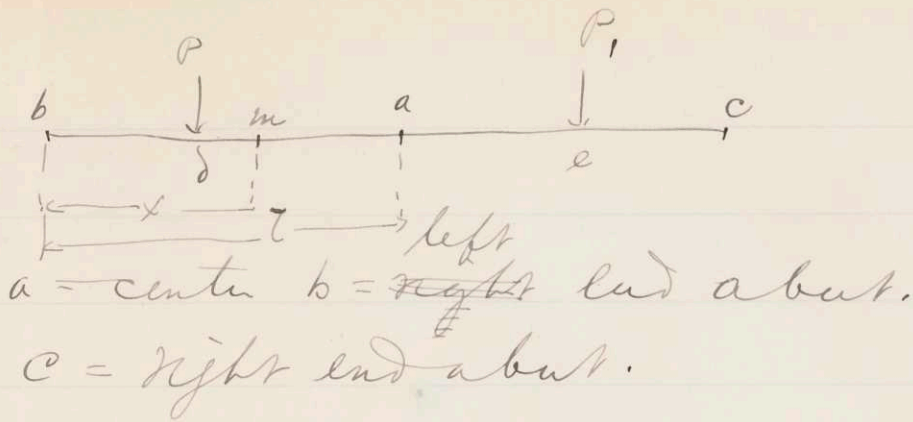 P P₁
b m a c
d e
x
l
left
a = center b = right end about.
c = right end about.